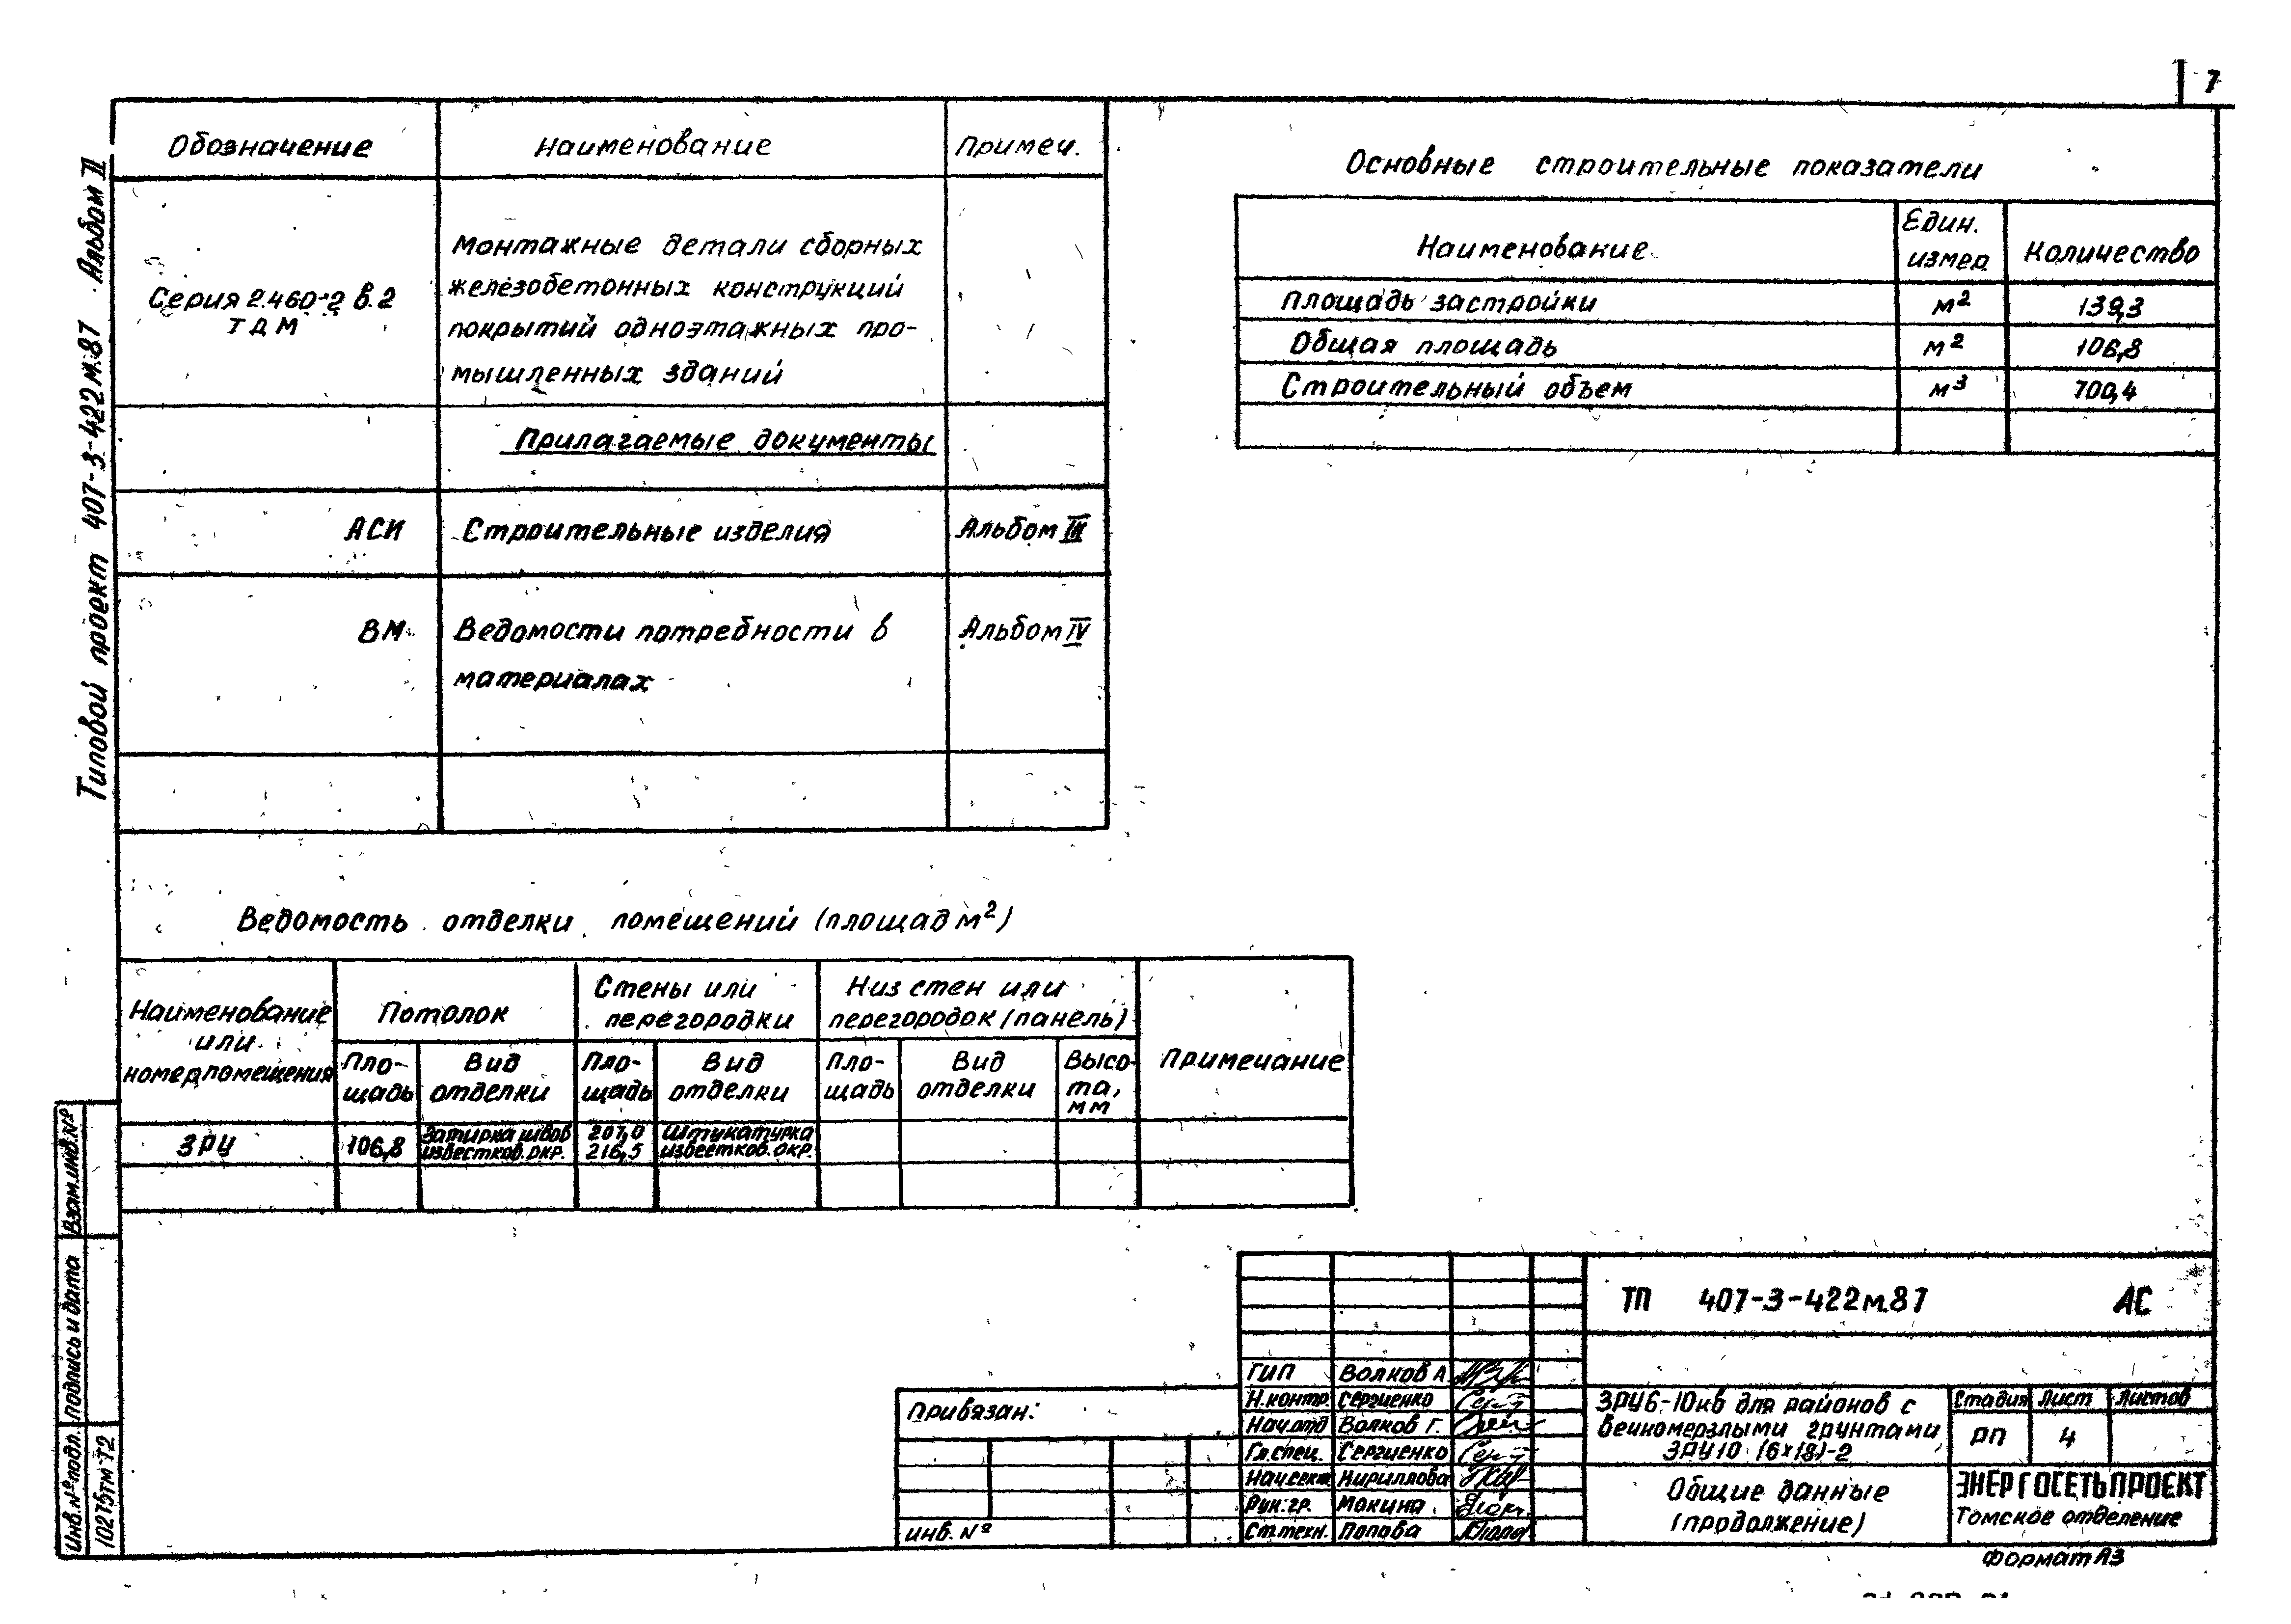 7
Типовой проект 407-3-422м.87 Альбом II
Обозначение Наименование Примеч.
Серия 2.460-2 в.2
ТДМ
Монтажные детали сборных
железобетонных конструкций
покрытий одноэтажных про-
мышленных зданий
Прилагаемые документы
АСИ Строительные изделия Альбом III
ВМ Ведомости потребности в Альбом IV
материалах
Основные строительные показатели
Наименование Един. измер. Количество
Площадь застройки м² 139,3
Общая площадь м² 106,8
Строительный объем м³ 700,4
Ведомость отделки помещений (площад м²)
Наименование
или
номер помещения
Потолок
Стены или
перегородки
Низ стен или
перегородок (панель)
Примечание
Пло-
щадь
Вид
отделки
Пло-
щадь
Вид
отделки
Пло-
щадь
Вид
отделки
Высо-
та,
мм
ЗРУ 106,8
Затирка швов
известков. окр.
207,0
216,5
Штукатурка
известков. окр.
Взам.инв.№
Подпись и дата
Инв.№подл.
10275тм-Т2
Привязан:
инв. №
ГИП Волков А
Н.контр. Сергиенко
Нач.отд Волков Г.
Гл.спец. Сергиенко
Нач.сект. Кириллова
Рук.гр. Мокина
Ст.техн. Попова
ТП 407-3-422м.87 АС
ЗРУ6-10кв для районов с
вечномерзлыми грунтами
ЗРУ10 (6х18)-2
Стадия Лист Листов
РП 4
Общие данные
(продолжение)
ЭНЕРГОСЕТЬПРОЕКТ
Томское отделение
Формат А3